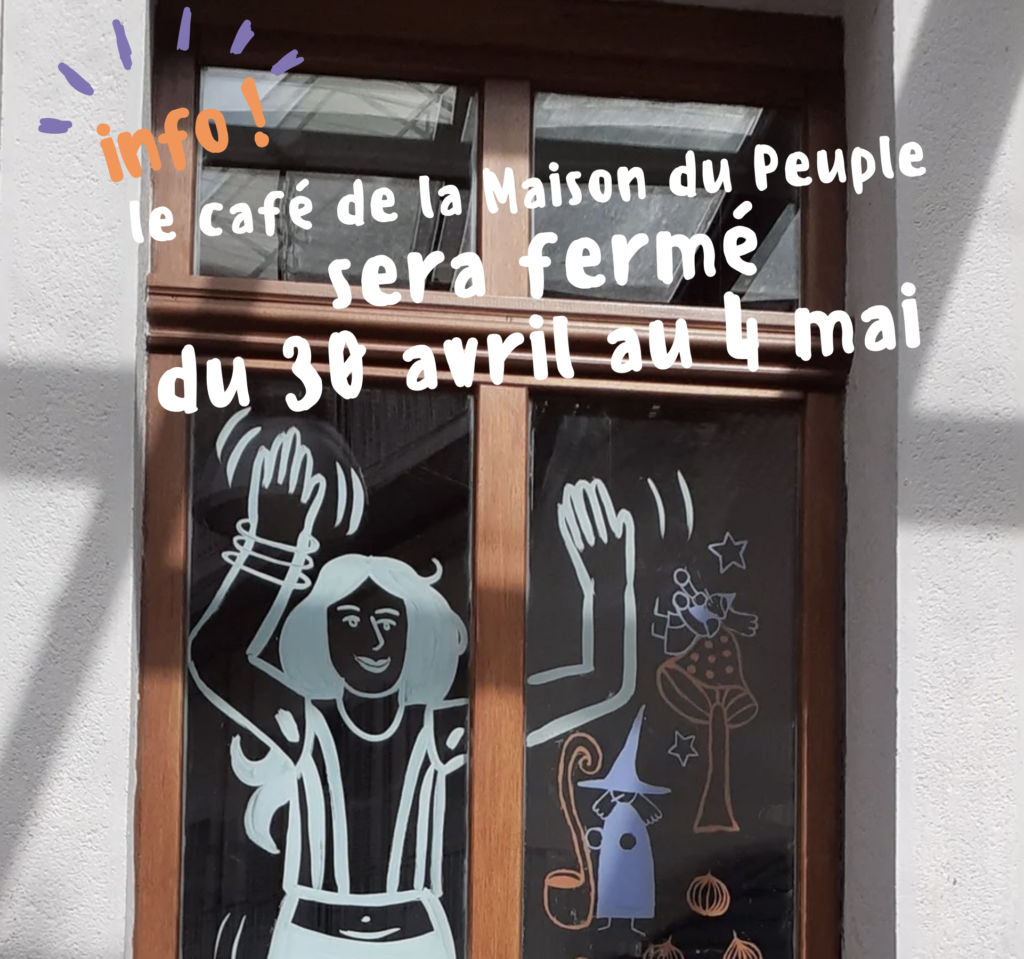 info !
le café de la Maison du Peuple
sera fermé
du 30 avril au 4 mai